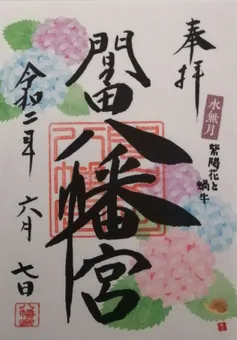 奉拝
水無月
紫陽花と
蝸牛
間々田八幡宮
令和二年
六月
七日